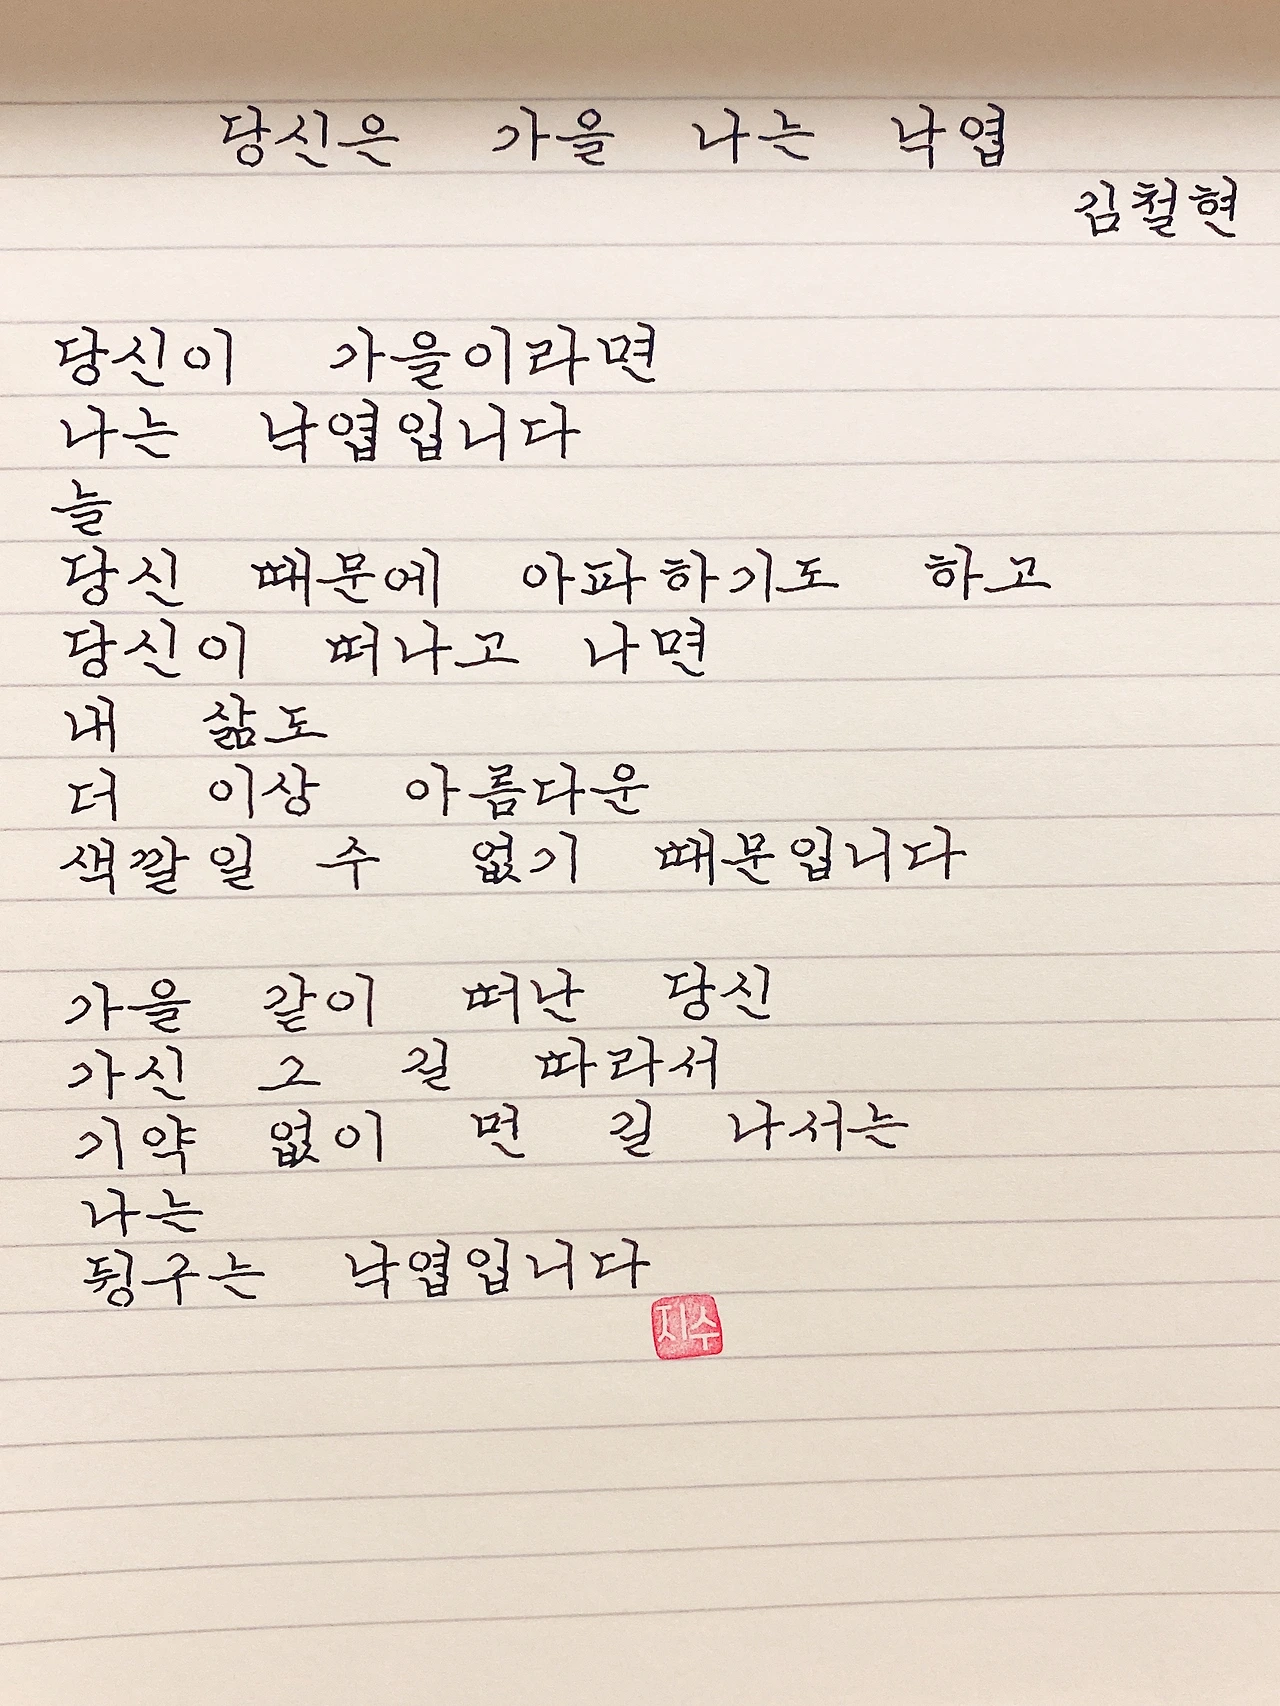 당신은 가을 나는 낙엽
김철현
당신이 가을이라면
나는 낙엽입니다
늘
당신 때문에 아파하기도 하고
당신이 떠나고 나면
내 삶도
더 이상 아름다운
색깔일 수 없기 때문입니다
가을 같이 떠난 당신
가신 그 길 따라서
기약 없이 먼 길 나서는
나는
뒹구는 낙엽입니다
지수